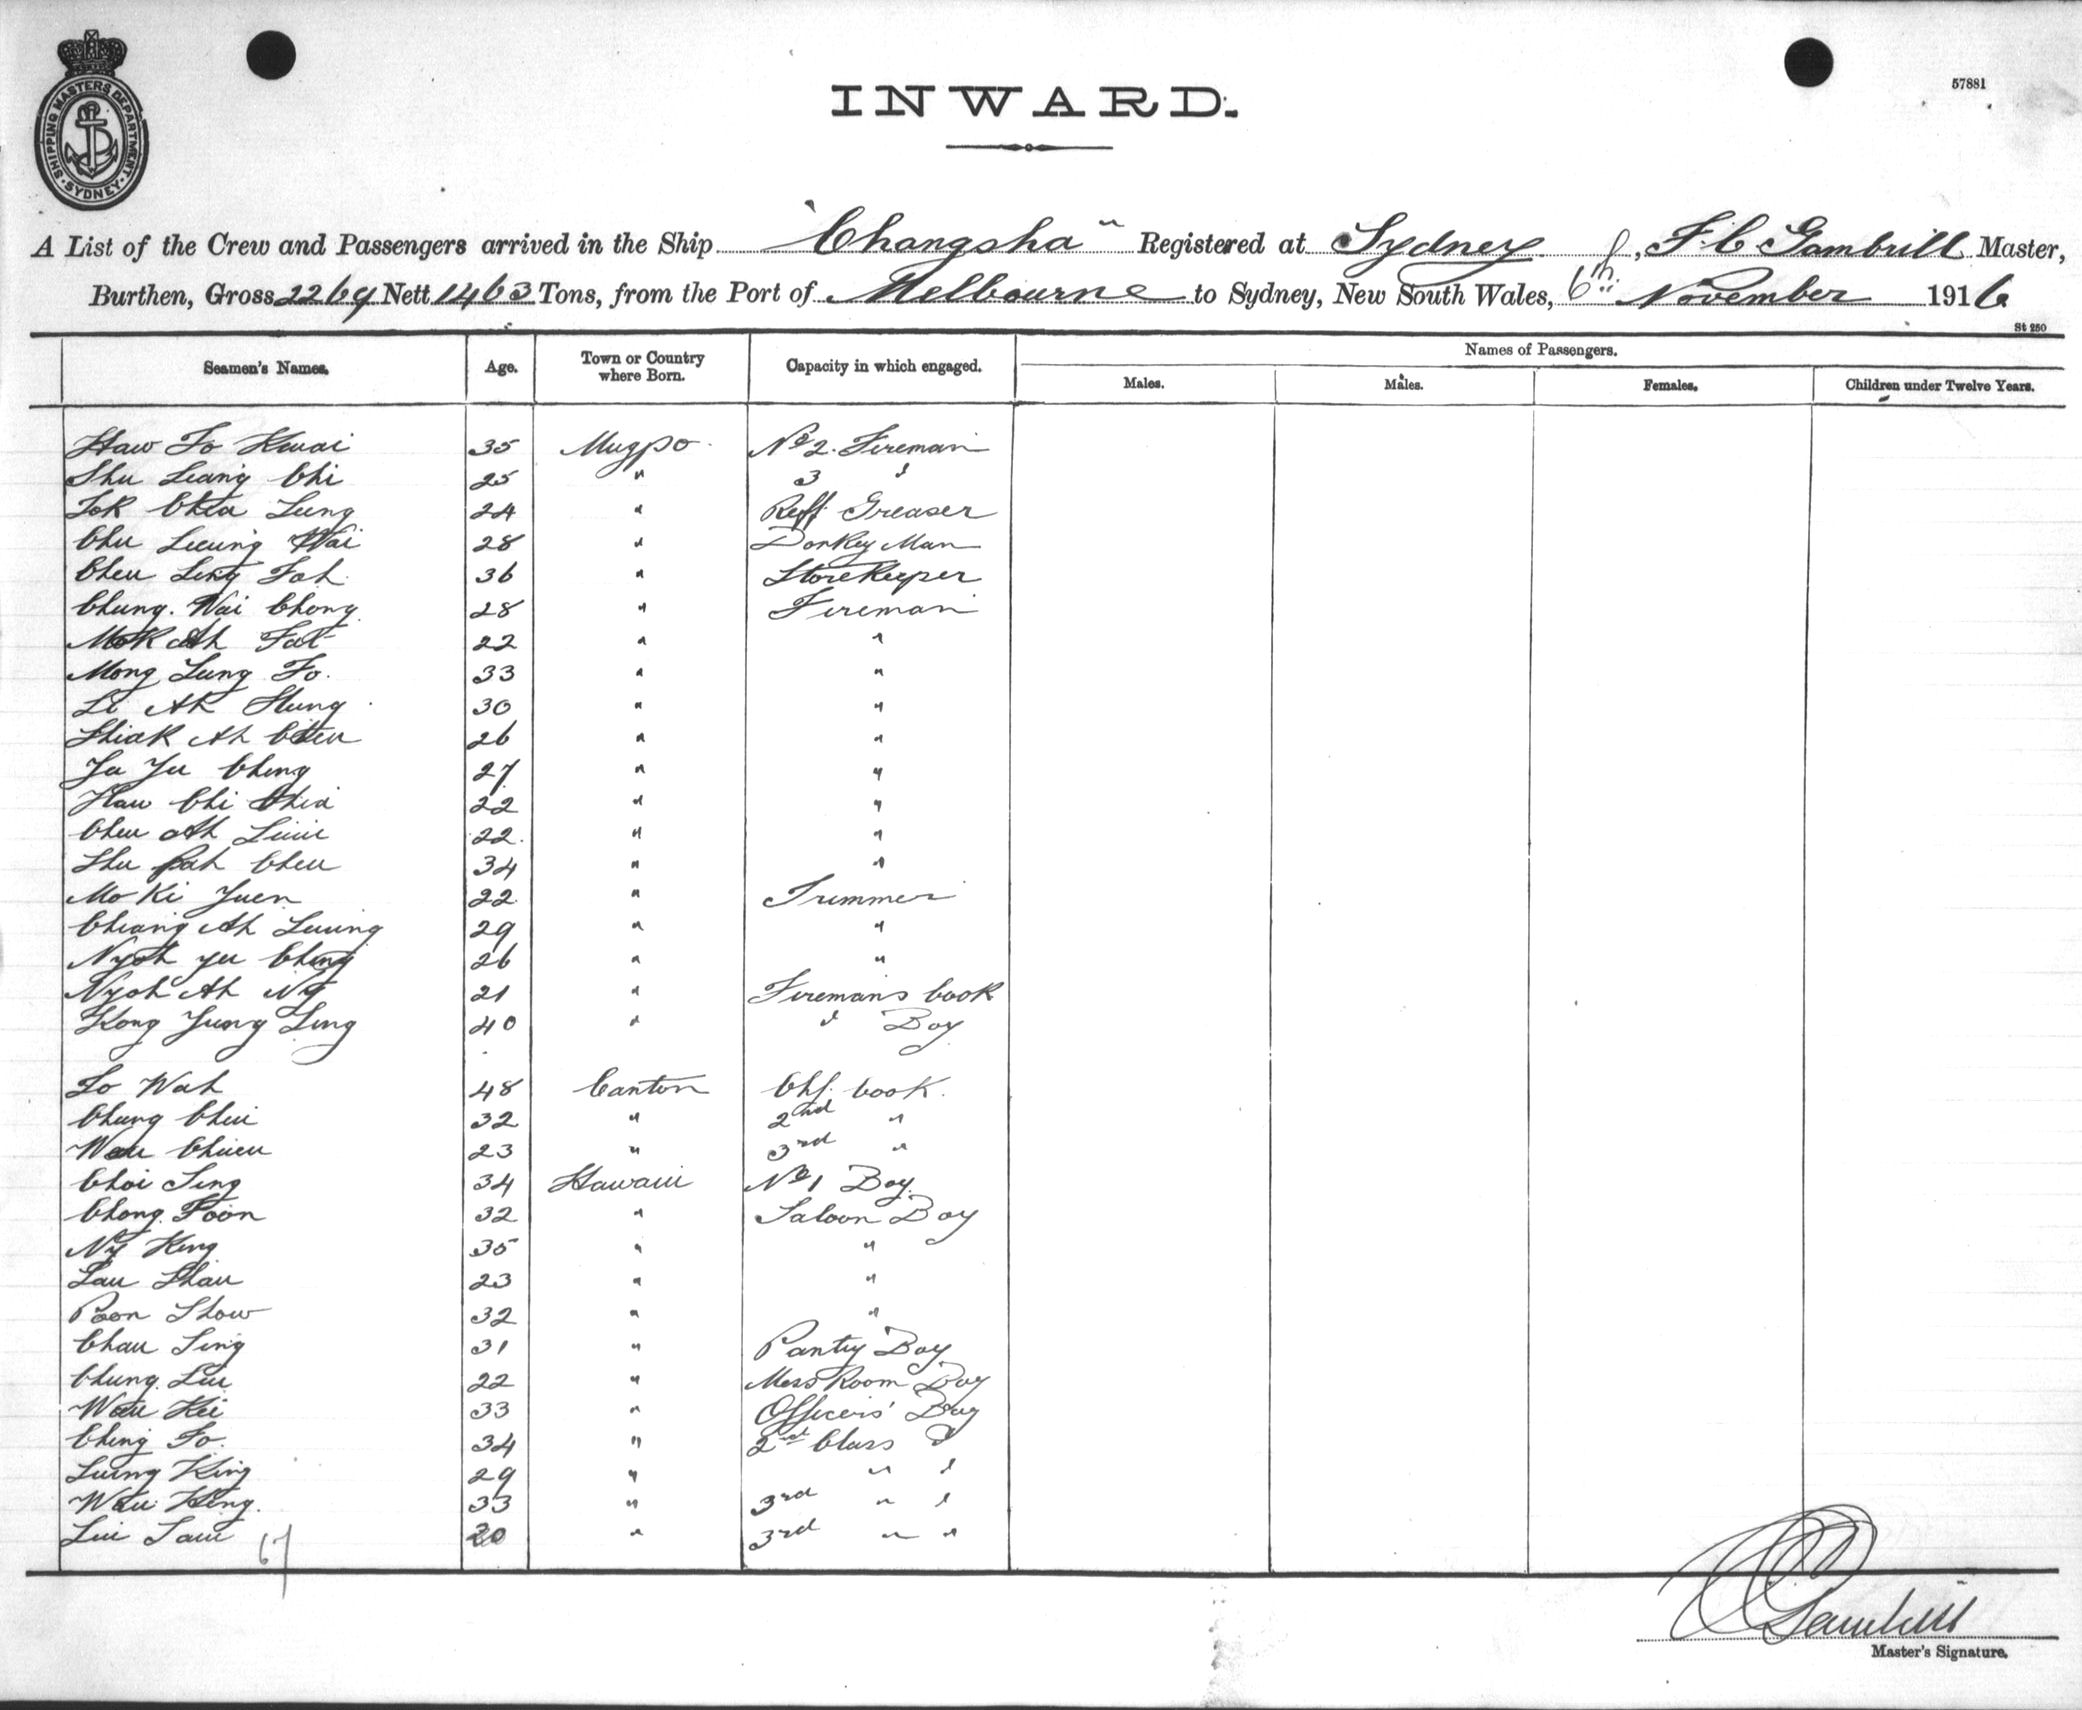 57881
SHIPPING MASTERS DEPARTMENT
SYDNEY
INWARD.
A List of the Crew and Passengers arrived in the Ship "Changsha" Registered at Sydney, F. C. Gambrill Master,
Burthen, Gross 2269 Nett 1463 Tons, from the Port of Melbourne to Sydney, New South Wales, 6th November 1916
St 250
Seamen's Names. Age. Town or Country where Born. Capacity in which engaged. Names of Passengers.
Males. Males. Females. Children under Twelve Years.
Haw Fo Kwai 35 No 2. Fireman
Shu Leang Chi 25 " 3 "
Chia Lung 24 " Greaser
Chu Leung Wai 28 " Donkey Man
Cheu Ling Fah 36 " Storekeeper
Chung Wai Chong 28 " Fireman
Mok Ah Fat 22 " "
Mong Lung Fo. 33 " "
Li Ah Hung 30 " "
Shiak Ah Cheu 26 " "
Ya Yu Ching 27 " "
Haw Chi Chia 22 " "
Cheu Ah 22 " "
Shu Pah Cheu 34 " "
Mo Ki Yuen 22 " Trimmer
Chiang Ah Leung 29 " "
Nyoh Yu Ching 26 " "
Nyoh Ah Ng 21 " Firemans Cook
Kong Yung Ling 40 " " Boy
Lo Wah 48 Canton Chf. Cook.
Chung Chui 32 " 2nd "
Wau 23 " 3rd "
Choi Sing 34 No 1 Boy.
Chong Foon 32 " Saloon Boy
Ng King 35 " "
Lau Shau 23 " "
Poon Show 32 " "
Chau Sing 31 " Pantry Boy
Chung Liu 22 " Mess Room Boy
Wau Kei 33 " Officers' Boy
Ching Fo. 34 " 2nd Class "
Leung King 29 " " "
Wau Hing. 33 " 3rd " "
Liu Sau 20 " 3rd " "
67
Gambrill
Master's Signature.